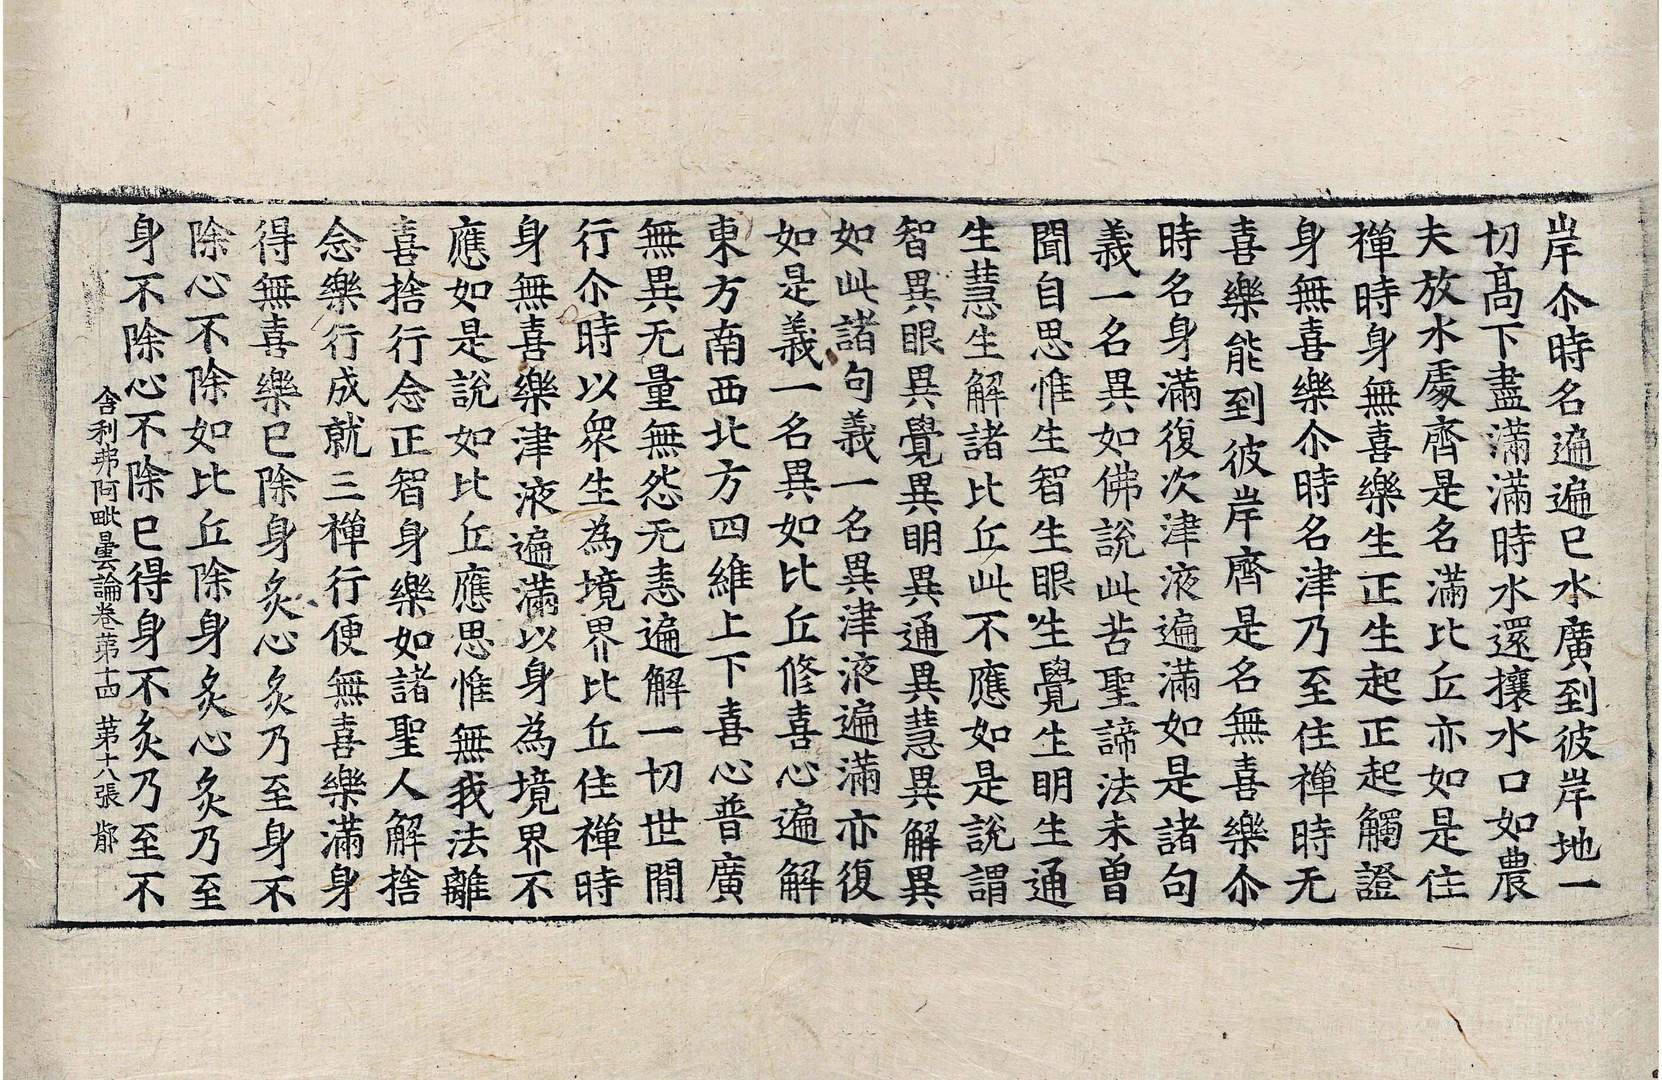 岸尒時名遍遍已水廣到彼岸地一
切高下盡滿滿時水還攘水口如農
夫放水處齊是名滿比丘亦如是住
禪時身無喜樂生正生起正起觸證
身無喜樂尒時名津乃至住禪時无
喜樂能到彼岸齊是名無喜樂尒
時名身滿復次津液遍滿如是諸句
義一名異如佛說此苦聖諦法未曾
聞自思惟生智生眼生覺生明生通
生慧生解諸比丘此不應如是說謂
智異眼異覺異明異通異慧異解異
如此諸句義一名異津液遍滿亦復
如是義一名異如比丘修喜心遍解
東方南西北方四維上下喜心普廣
無異无量無怨无恚遍解一切世間
行尒時以衆生為境界比丘住禪時
身無喜樂津液遍滿以身為境界不
應如是說如比丘應思惟無我法離
喜捨行念正智身樂如諸聖人解捨
念樂行成就三禪行便無喜樂滿身
得無喜樂已除身炙心炙乃至身不
除心不除如比丘除身炙心炙乃至
身不除心不除已得身不炙乃至不
舍利弗阿毗曇論卷苐十四 苐十八張 鄁